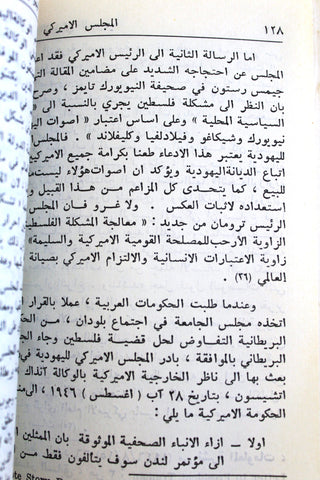 ١٢٨ المجلس الاميركي
اما الرسالة الثانية الى الرئيس الاميركي فقد اعـ
المجلس عن احتجاجه الشديد على مضامين المقالة التي
جيمس رستون في صحيفة النيويورك تايمز ، وصرح
بان النظر الى مشكلة فلسطين يجري بالنسبة الى «
السياسية المحلية » وعلى اساس اعتبار « اصوات اليهو
نيويورك وشيكاغو وفيلادلفيا وكليفلاند » . فالمجلس
لليهودية يعتبر هذا الادعاء طعنا بكرامة جميع الاميركيـ
اتباع الديانة اليهودية ويؤكد ان اصوات هؤلاء ليست
للبيع ، كما يتحدى كل المزاعم من هذا القبيل و
استعداده لاثبات العكس . ولا غرو فان المجلس
الرئيس ترومان من جديد : « معالجة المشكلة الفلسط
الزاوية الارحب للمصلحة القومية الاميركية والسليمة »
زاوية الاعتبارات الانسانية والالتزام الاميركي بصيانة
العالمي (٢٦) .
وعندما طلبت الحكومات العربية ، عملا بالقرار ا
اتخذه مجلس الجامعة في اجتماع بلودان ، من الحكـ
البريطانية التفاوض لحل قضية فلسطين وجاء الجـ
البريطاني بالموافقة ، بادر المجلس الاميركي لليهودية في
بعث بها الى ناظر الخارجية الاميركية بالوكالة آنذاك
اتشيسون ، بتاريخ ٢٨ آب ( اغسطس ) ١٩٤٦ ، الى
الحكومة الاميركية ما يلي :
اولا – ازاء الانباء الصحفية الموثوقة بان الممثلين
الى مؤتمر لندن سوف يتألفون فقط مـن